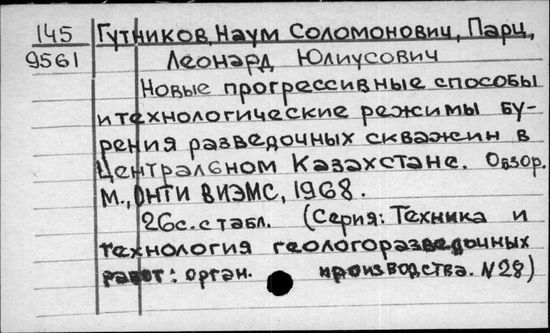 145 Гутников, Наум Соломонович, Парц,
9561 Леонард Юлиусович
Новые прогрессивные способы
и технологические режимы бу-
рения разведочных скважин в
Центральном Казахстане. Обзор.
М., ОНТИ ВИЭМС, 1968.
26с. с табл. (Серия: Техника и
технология геологоразведочных
работ: орган. производства. N28)